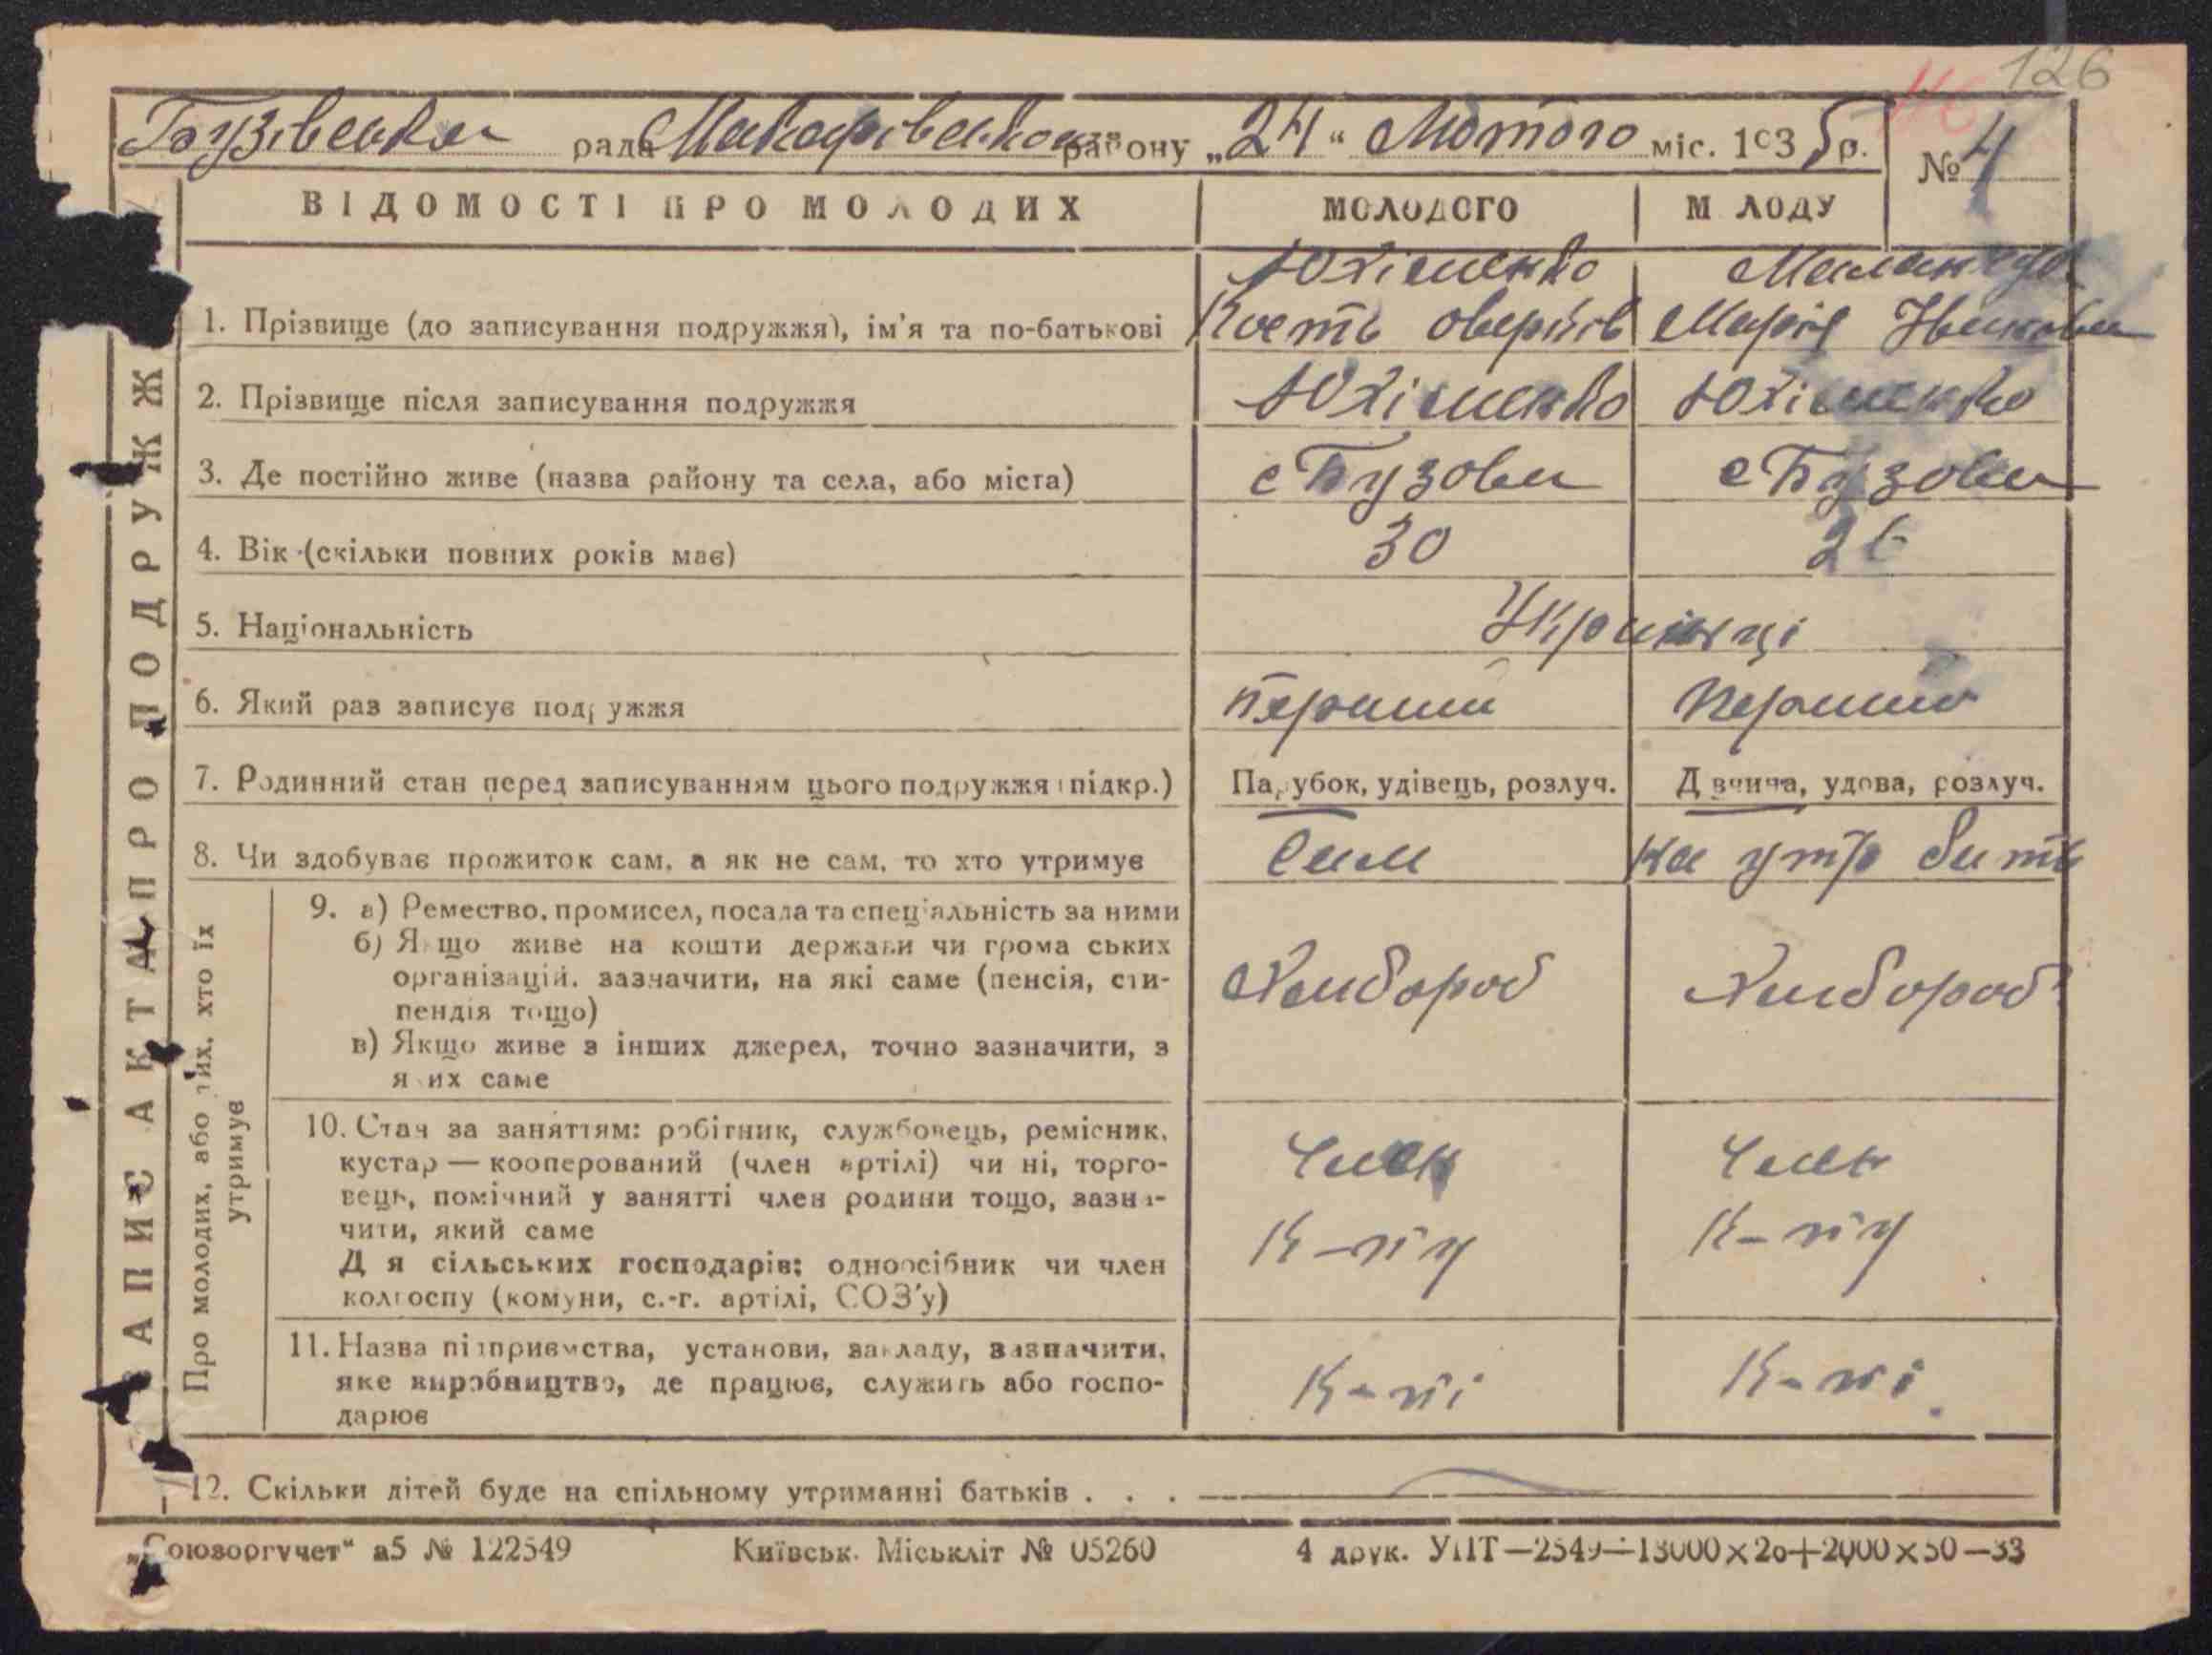 126
116
Бузівська рада Макарівського району „24" Лютого міс. 1935 р. № 4
ВІДОМОСТІ ПРО МОЛОДИХ МОЛОДОГО М ЛОДУ
ЗАПИС АКТА ПРО ПОДРУЖЖ
Юхіменко
1. Прізвище (до записування подружжя), ім'я та по-батькові Кость Оверків Марія Іванова
2. Прізвище після записування подружжя Юхіменко Юхіменко
3. Де постійно живе (назва району та села, або міста) с Бузова с Бузова
4. Вік (скільки повних років має) 30 26
5. Національність Українці
6. Який раз записує под ужжя перший перший
7. Родинний стан перед записуванням цього подружжя (підкр.) Па убок, удівець, розлуч. Д вчина, удова, розлуч.
8. Чи здобуває прожиток сам, а як не сам, то хто утримує Сам на утр бать
Про молодих, або тих, хто їх утримує
9. а) Ремество, промисел, посада та спеціальність за ними
б) Я що живе на кошти держави чи грома ських
організацій, зазначити, на які саме (пенсія, сти-
пендія тощо)
Хлібороб Хлібороб
в) Якщо живе з інших джерел, точно зазначити, з
я их саме
10. Стан за заняттям: робітник, службовець, ремісник,
кустар — кооперований (член артілі) чи ні, торго-
вець, помічний у занятті член родини тощо, зазна-
чити, який саме
Д я сільських господарів: одноосібник чи член
колгоспу (комуни, с.-г. артілі, СОЗ'у)
Член Член
К-пу К-пу
11. Назва підприємства, установи, закладу, зазначити,
яке виробництво, де працює, служить або госпо-
дарює
К-пі К-пі
12. Скільки дітей буде на спільному утриманні батьків . . .
„Союзоргучет" а5 № 122549 Київськ. Міськліт № 05260 4 друк. УПТ—2549—13000×20+2000×50—33